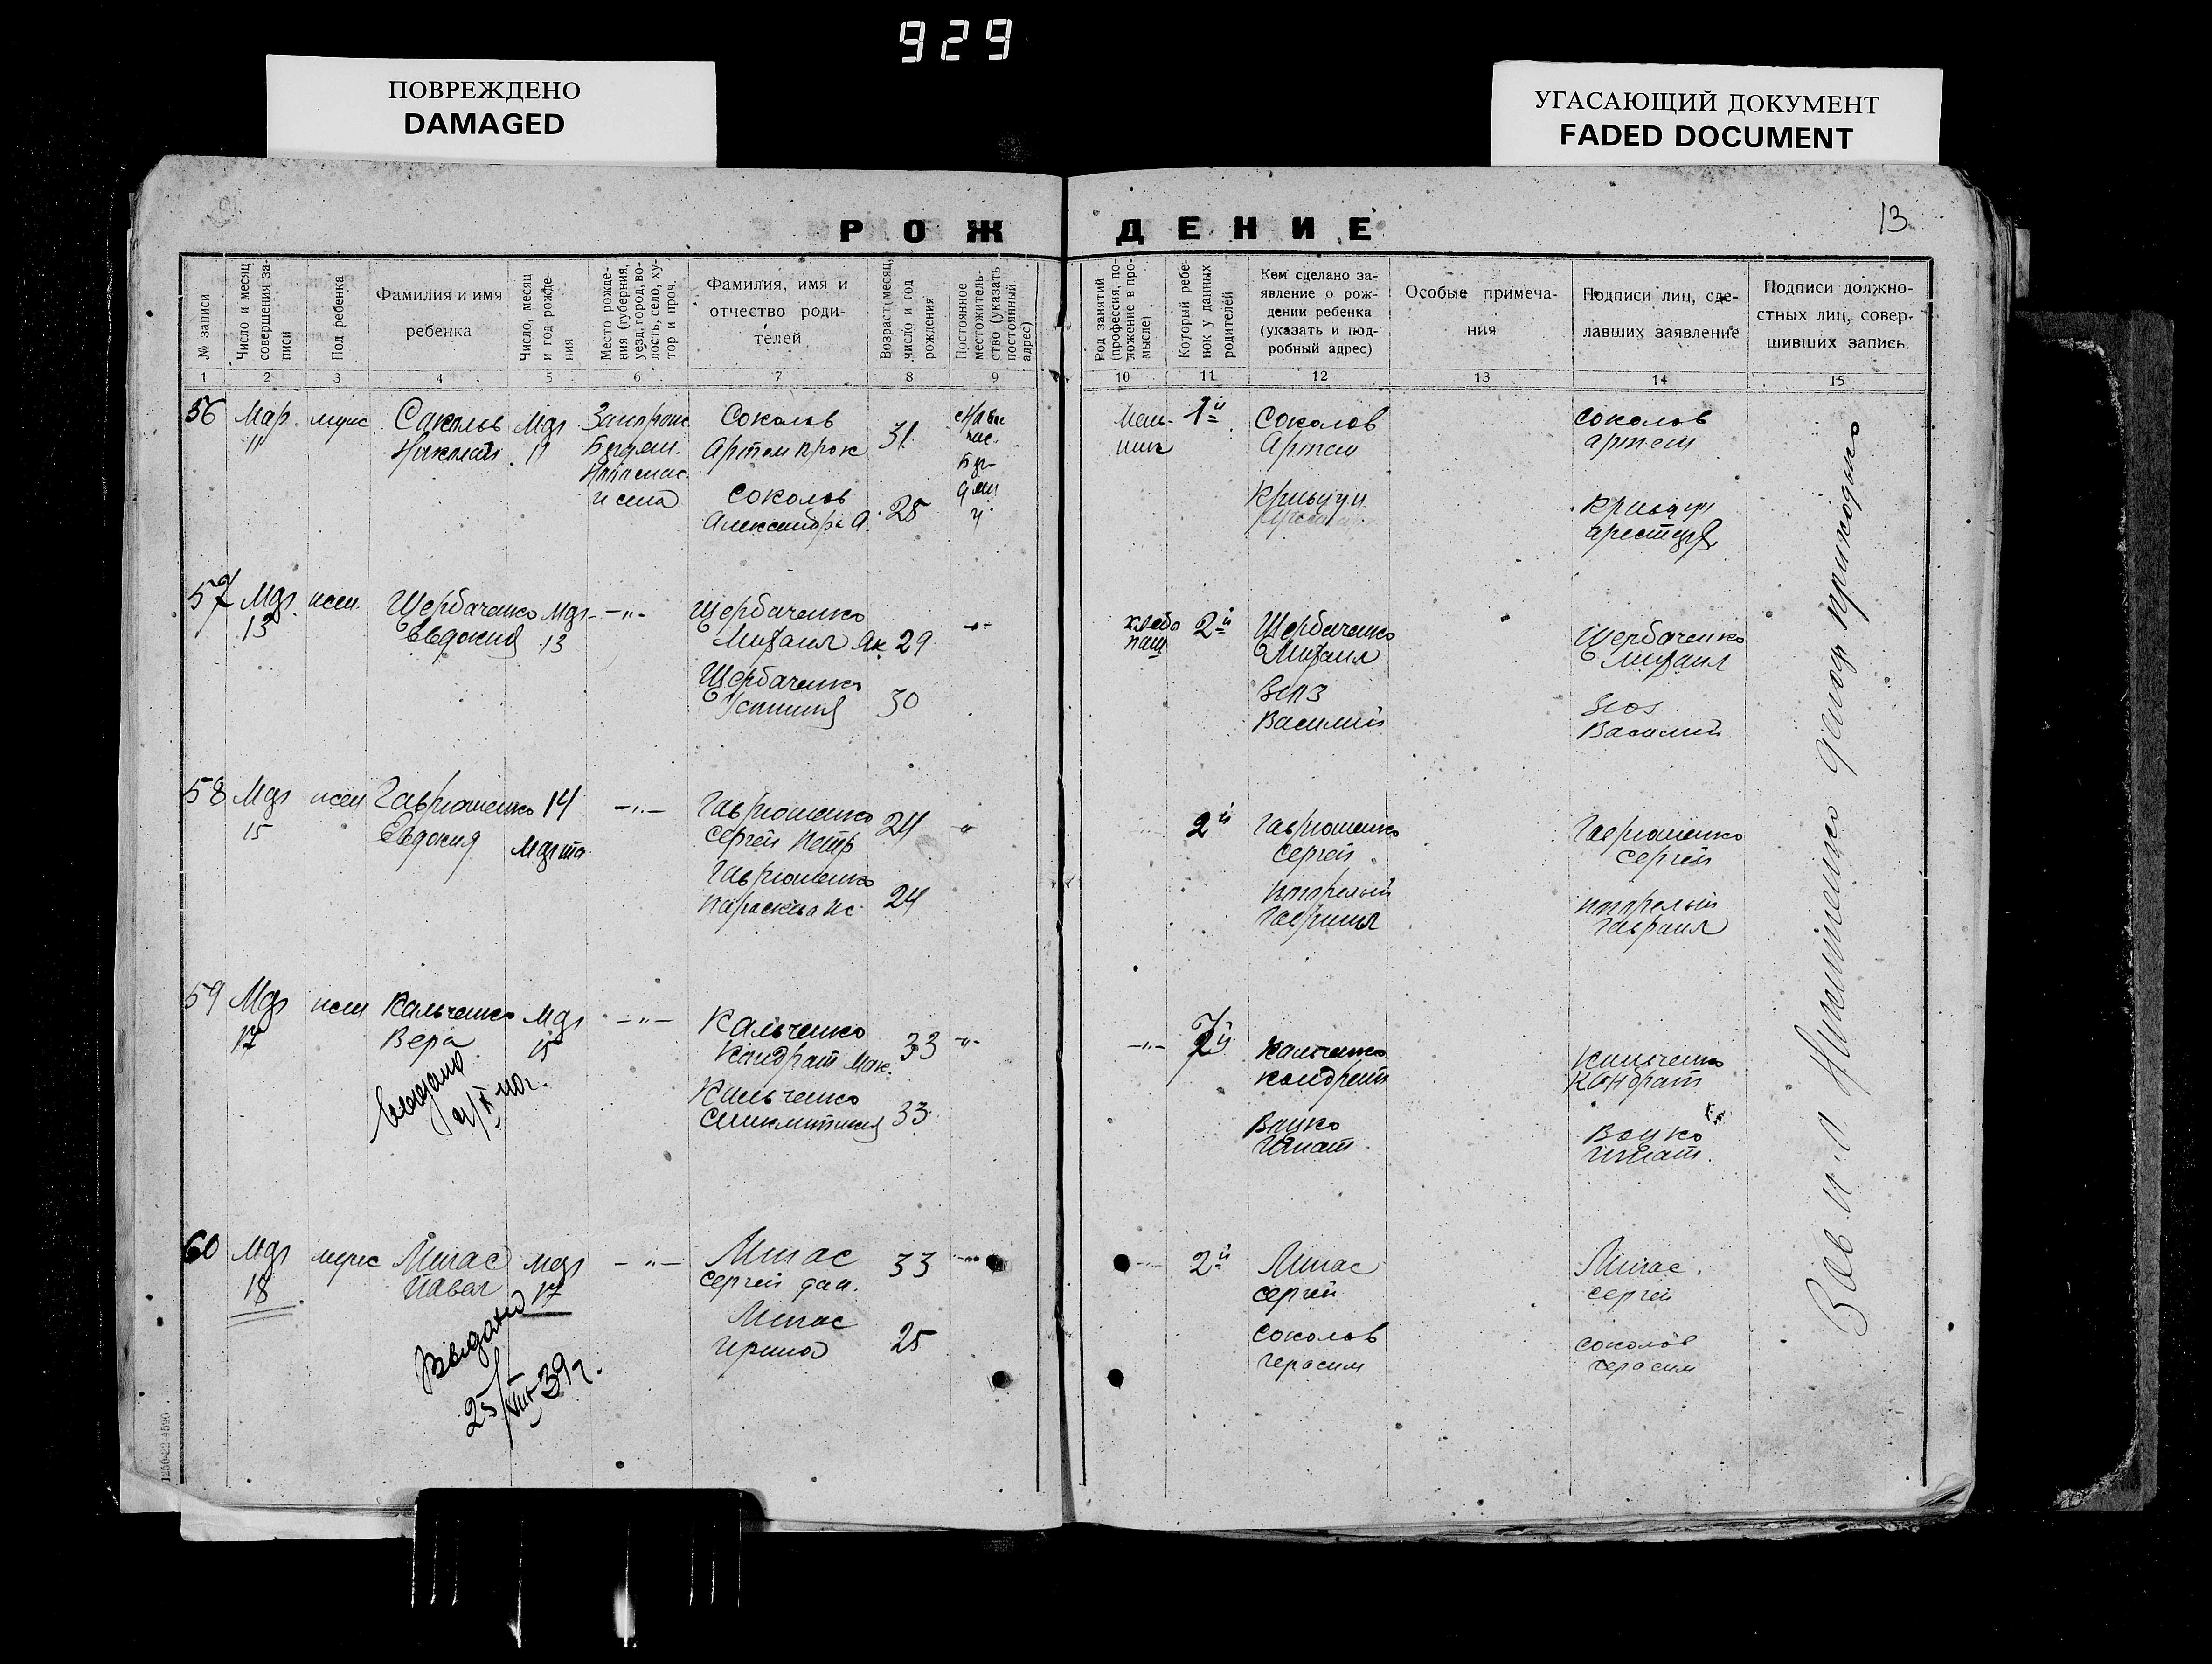 929
ПОВРЕЖДЕНО
DAMAGED
УГАСАЮЩИЙ ДОКУМЕНТ
FADED DOCUMENT
13
РОЖДЕНИЕ
№ записи
Число и месяц
совершения за-
писи
Пол ребенка
Фамилия и имя
ребенка
Число, месяц
и год рожде-
ния
Место рожде-
ния (губерния,
уезд, город, во-
лость, село, ху-
тор и проч.
Фамилия, имя и
отчество роди-
телей
Возраст (месяц,
число и год
рождения
Постоянное
местожитель-
ство (указать
постоянный
адрес)
Род занятий
(профессия, по-
ложение в про-
мысле)
Который ребе-
нок у данных
родителей
Кем сделано за-
явление о рож-
дении ребенка
(указать и под-
робный адрес)
Особые примеча-
ния
Подписи лиц, сде-
лавших заявление
Подписи должно-
стных лиц, совер-
шивших запись.
1 2 3 4 5 6 7 8 9 10 11 12 13 14 15
56
Мар.
11
муж
Соколов
Николай
Мар
11
Соколов
Артем Прок
31
Соколов
Александра А.
25
1й
Соколов
Артем
Соколов
Артем
57
Мар
13
жен.
Щербаченко
Евдокия
Мар
13
-"-
Щербаченко
Михаил Як.
29
Щербаченко
Устиния
30
-"-
хлебо
паш
2й
Щербаченко
Михаил
Василий
Щербаченко
Михаил
Василий
58
Мар
15
жен
Гаврюшенко
Евдокия
14
Марта
-"-
Гаврюшенко
Сергей Петр
24
Гаврюшенко
Параскева Ис.
24
"
2й
Гаврюшенко
Сергей
Гавриил
Гаврюшенко
Сергей
Гавриил
59
Мар
17
жен
Кальченко
Вера
Мар
15
-"-
Кальченко
Кондрат Мак.
33
Кальченко
33
-"-
-"-
7й
Кальченко
Кондрат
Воцко
Игнат
Кальченко
Кондрат
Воцко
Игнат.
60
Мар
18
муж
Минас
Павел
Мар
17
-"-
Минас
Сергей Дан.
33
Минас
Ирина
25
2й
Минас
Сергей
Соколов
Герасим
Минас.
Сергей
Соколов
Герасим
Выдано
25/VIII-39г.
1250-22-4590